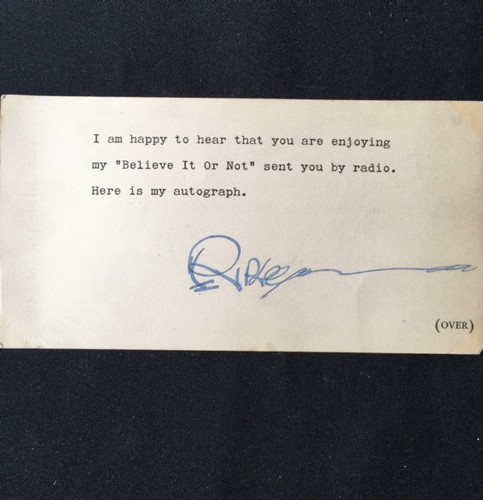 I am happy to hear that you are enjoying
my "Believe It Or Not" sent you by radio.
Here is my autograph.
Ripley
(OVER)